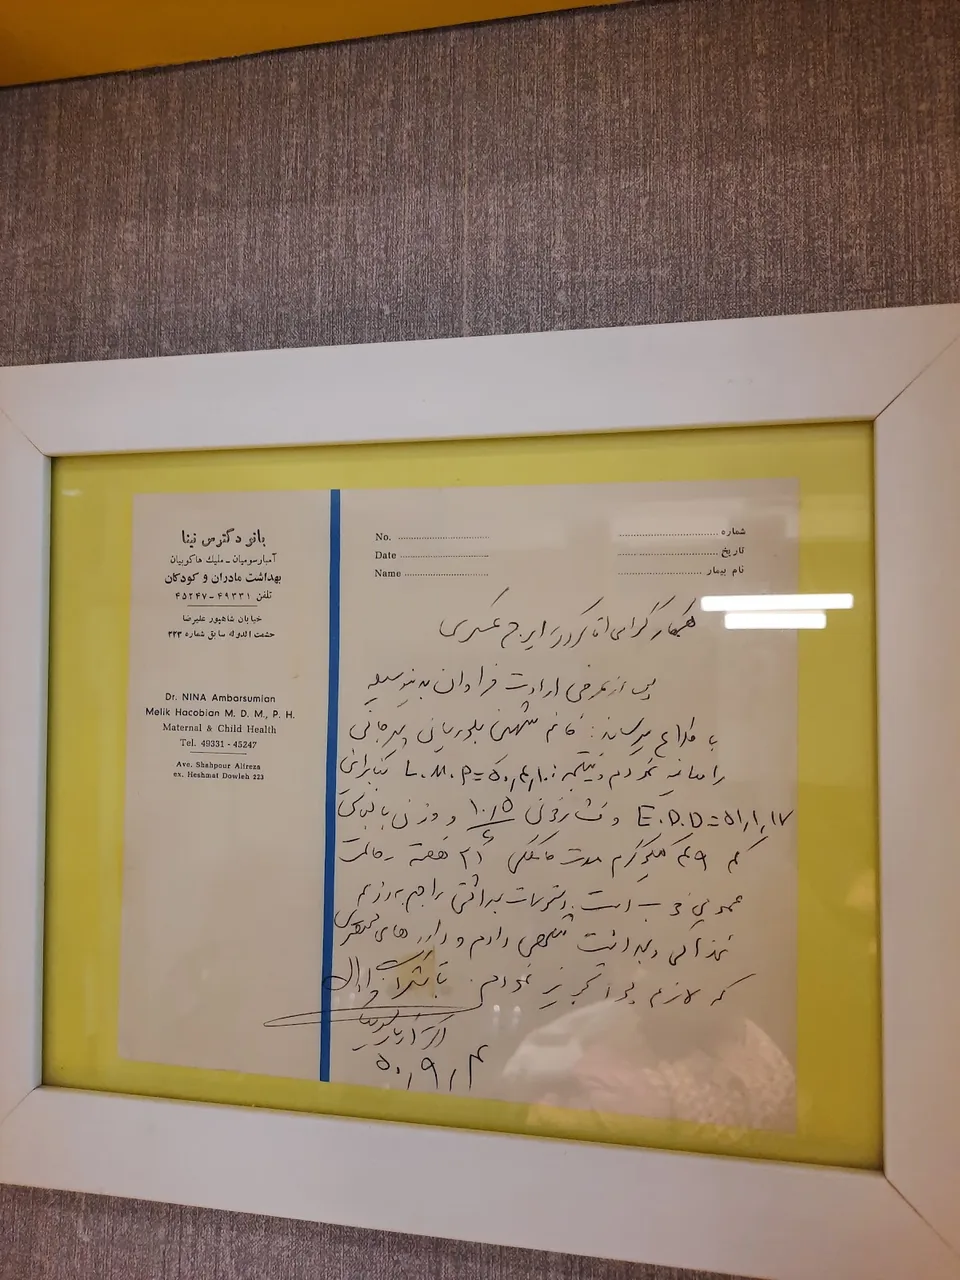 بانو دکترس نینا
آمبارسومیان - ملیك هاکوبیان
بهداشت مادران و کودکان
تلفن ۴۹۳۳۱ - ۴۵۲۴۷
خیابان شاهپور علیرضا
حشمت الدوله سابق شماره ۲۲۳
Dr. NINA Ambarsumian
Melik Hacobian M. D. M., P. H.
Maternal & Child Health
Tel. 49331 - 45247
Ave. Shahpour Alireza
ex. Heshmat Dowleh 223
No.
Date
Name
شماره
تاریخ
نام بیمار
همکار گرامی آقای دکتر ایرج عسکری
پس از عرض ارادت فراوان بدینوسیله
باطلاع میرساند: خانم
را معاینه نمودم L.M.P=۵۰,۴,۱۰ بنابراین
E.D.D=۵۱,۱,۱۷ و فشار خون ۱۰,۵/۶ و وزن با لباس
کیلوگرم مدت حاملگی ۲۱ هفته حالت
عمومی خوب است دستورات بهداشتی راجع به رژیم
غذائی و بهداشت شخصی دادم و داروهای
که لازم بود تجویز نمودم. با تشکرات
۵۰,۹,۴